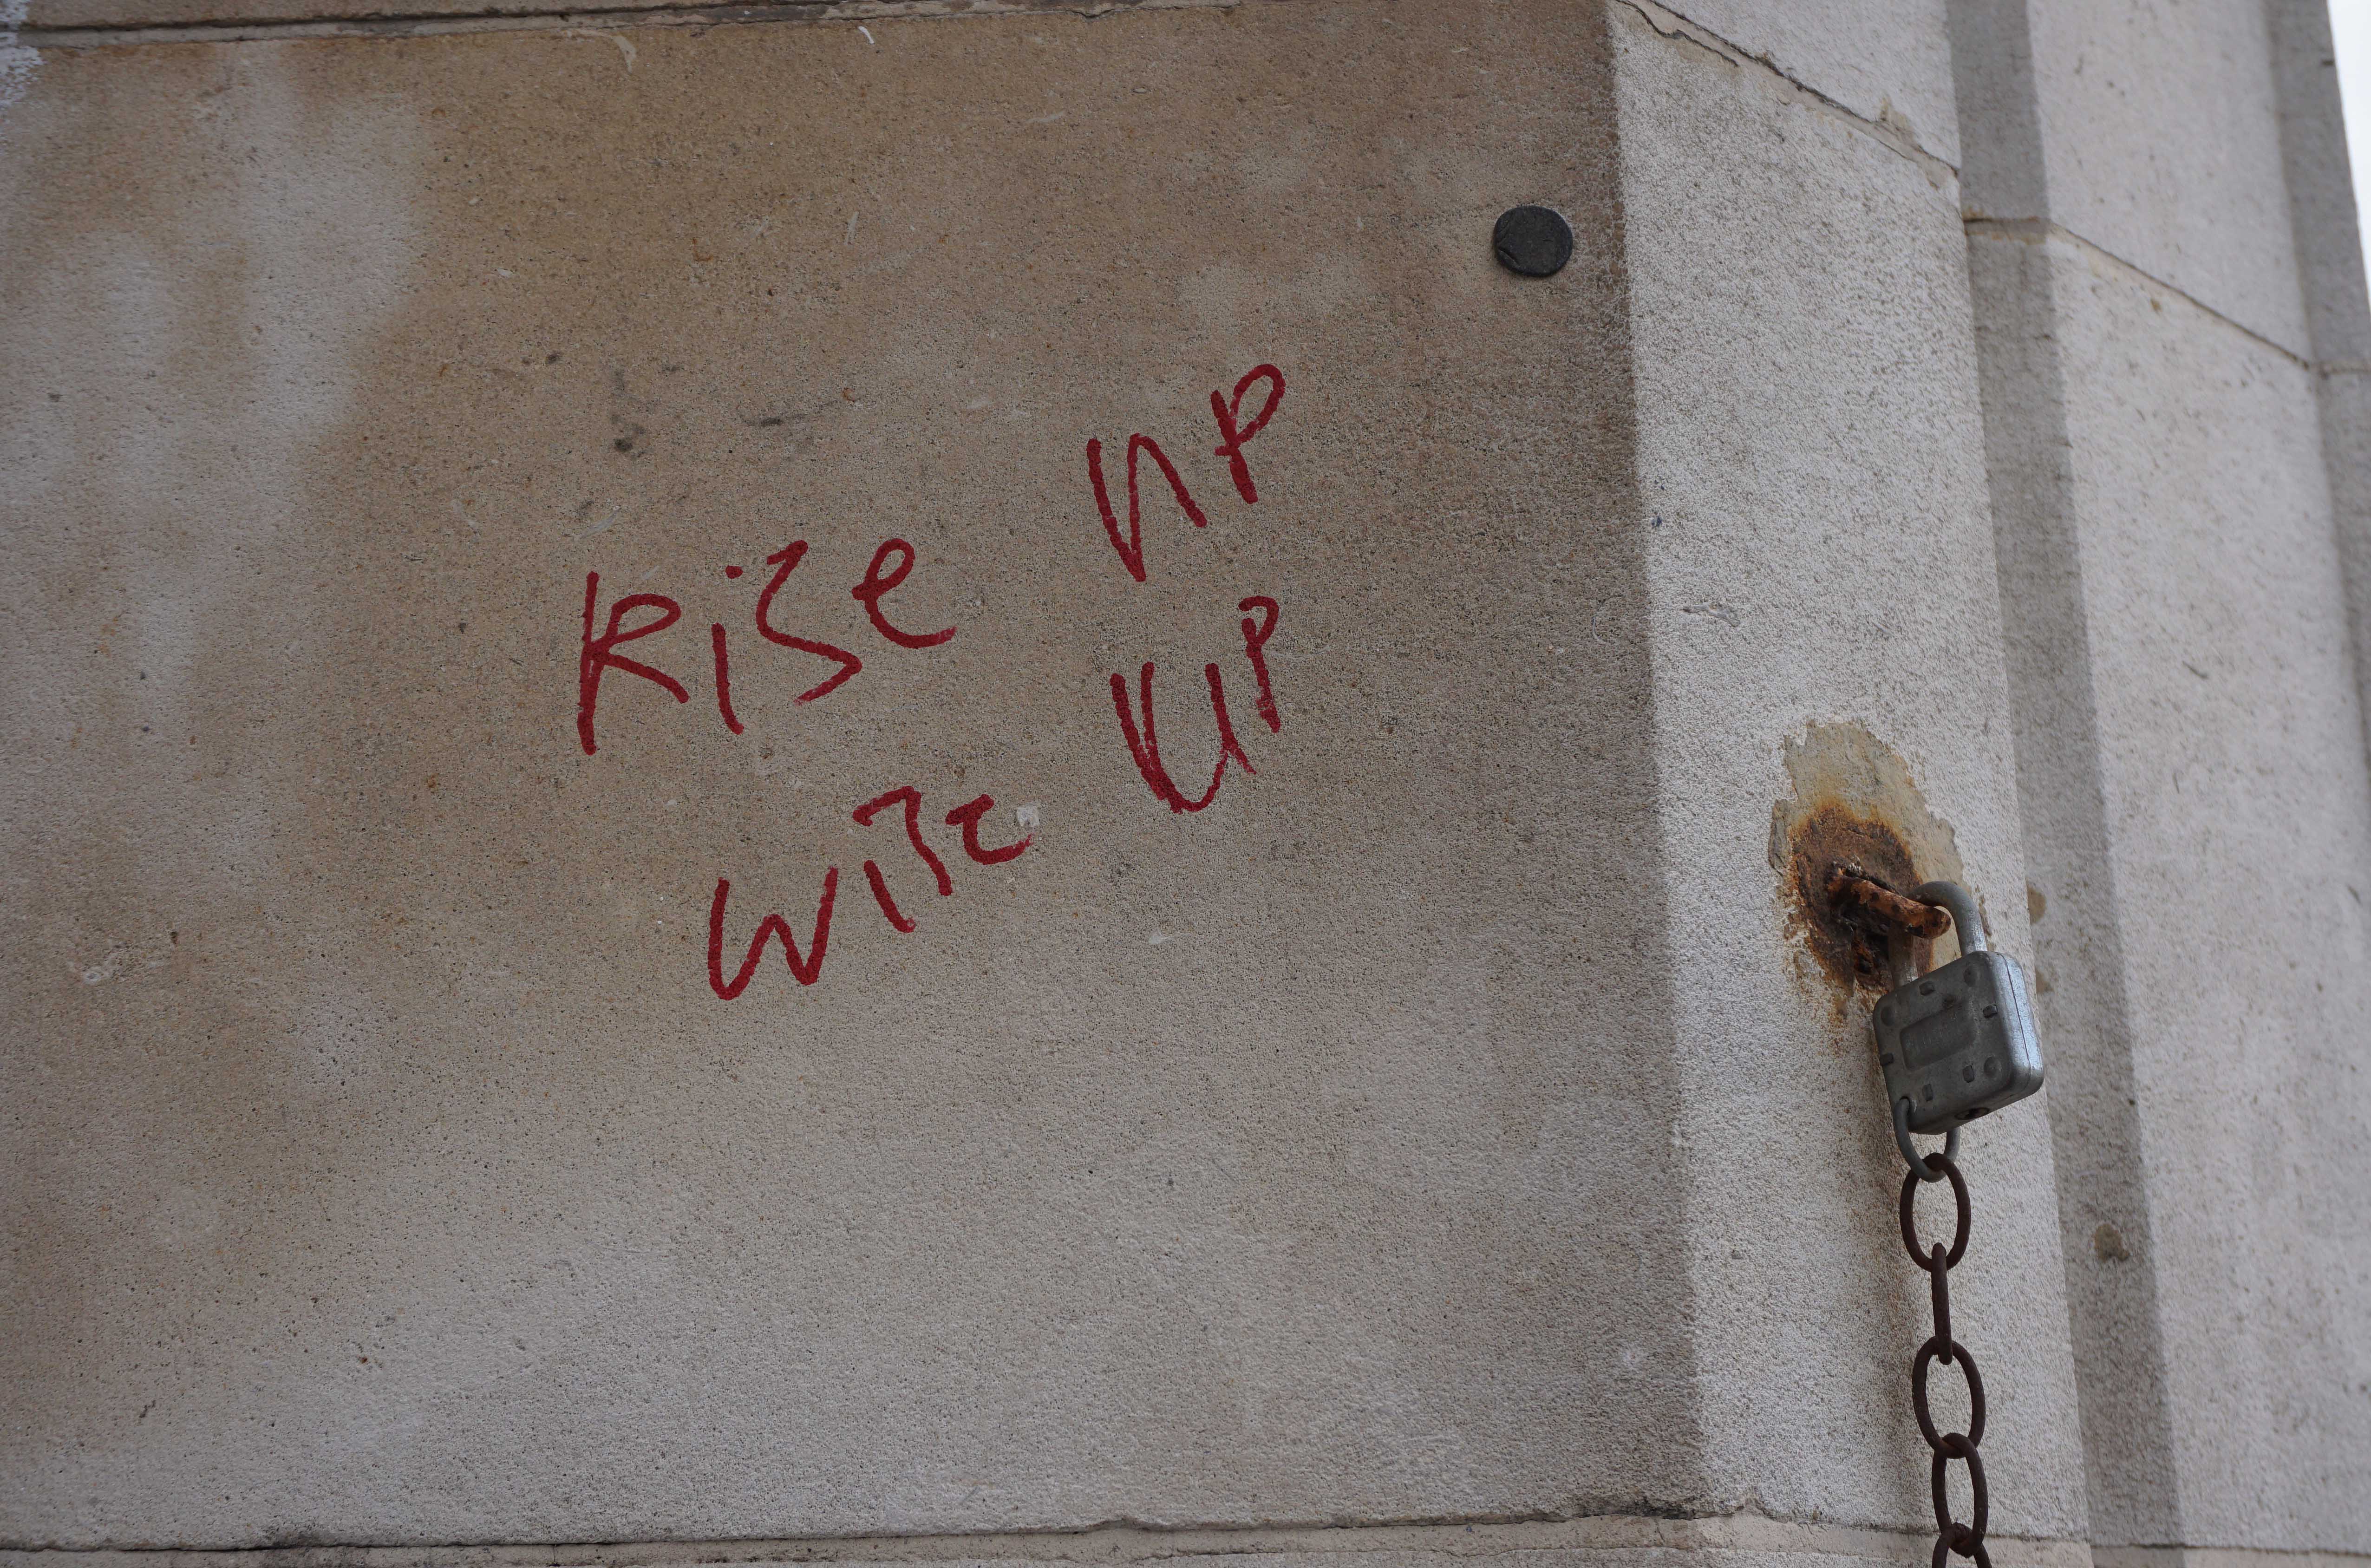 Rise UP
Wise UP